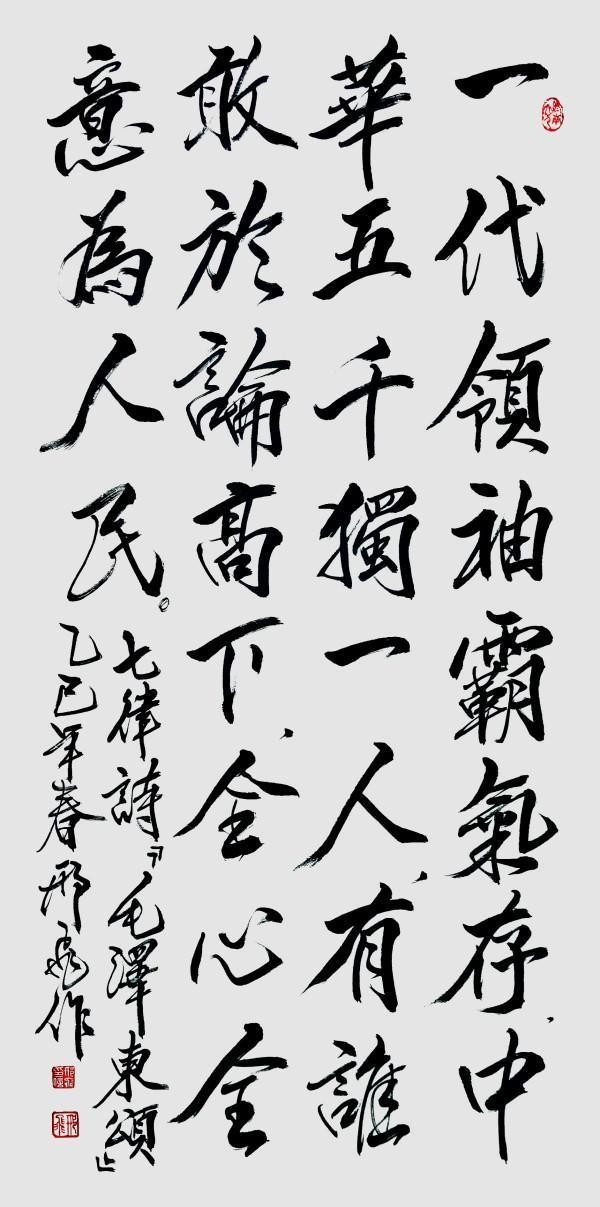 一代領袖霸氣存、中
華五千獨一人、有誰
敢於論高下、全心全
意為人民。
七律詩『毛澤東頌』
乙巳年春邢飛作